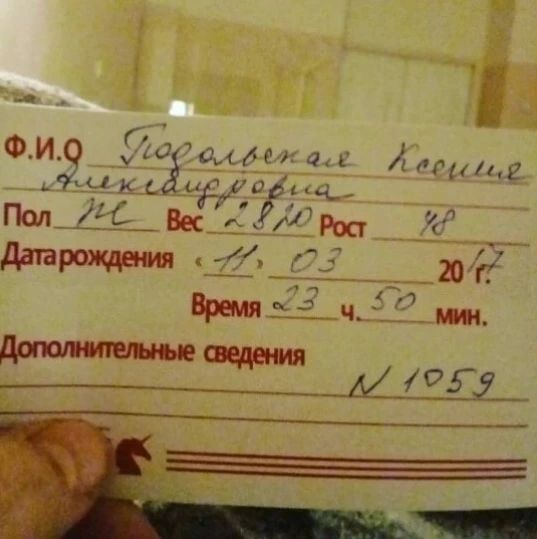 Ф.И.О Подольская Ксения
Александровна
Пол Ж Вес 2820 Рост 48
Дата рождения «11» 03 2017 г.
Время 23 ч. 50 мин.
Дополнительные сведения
N 1059